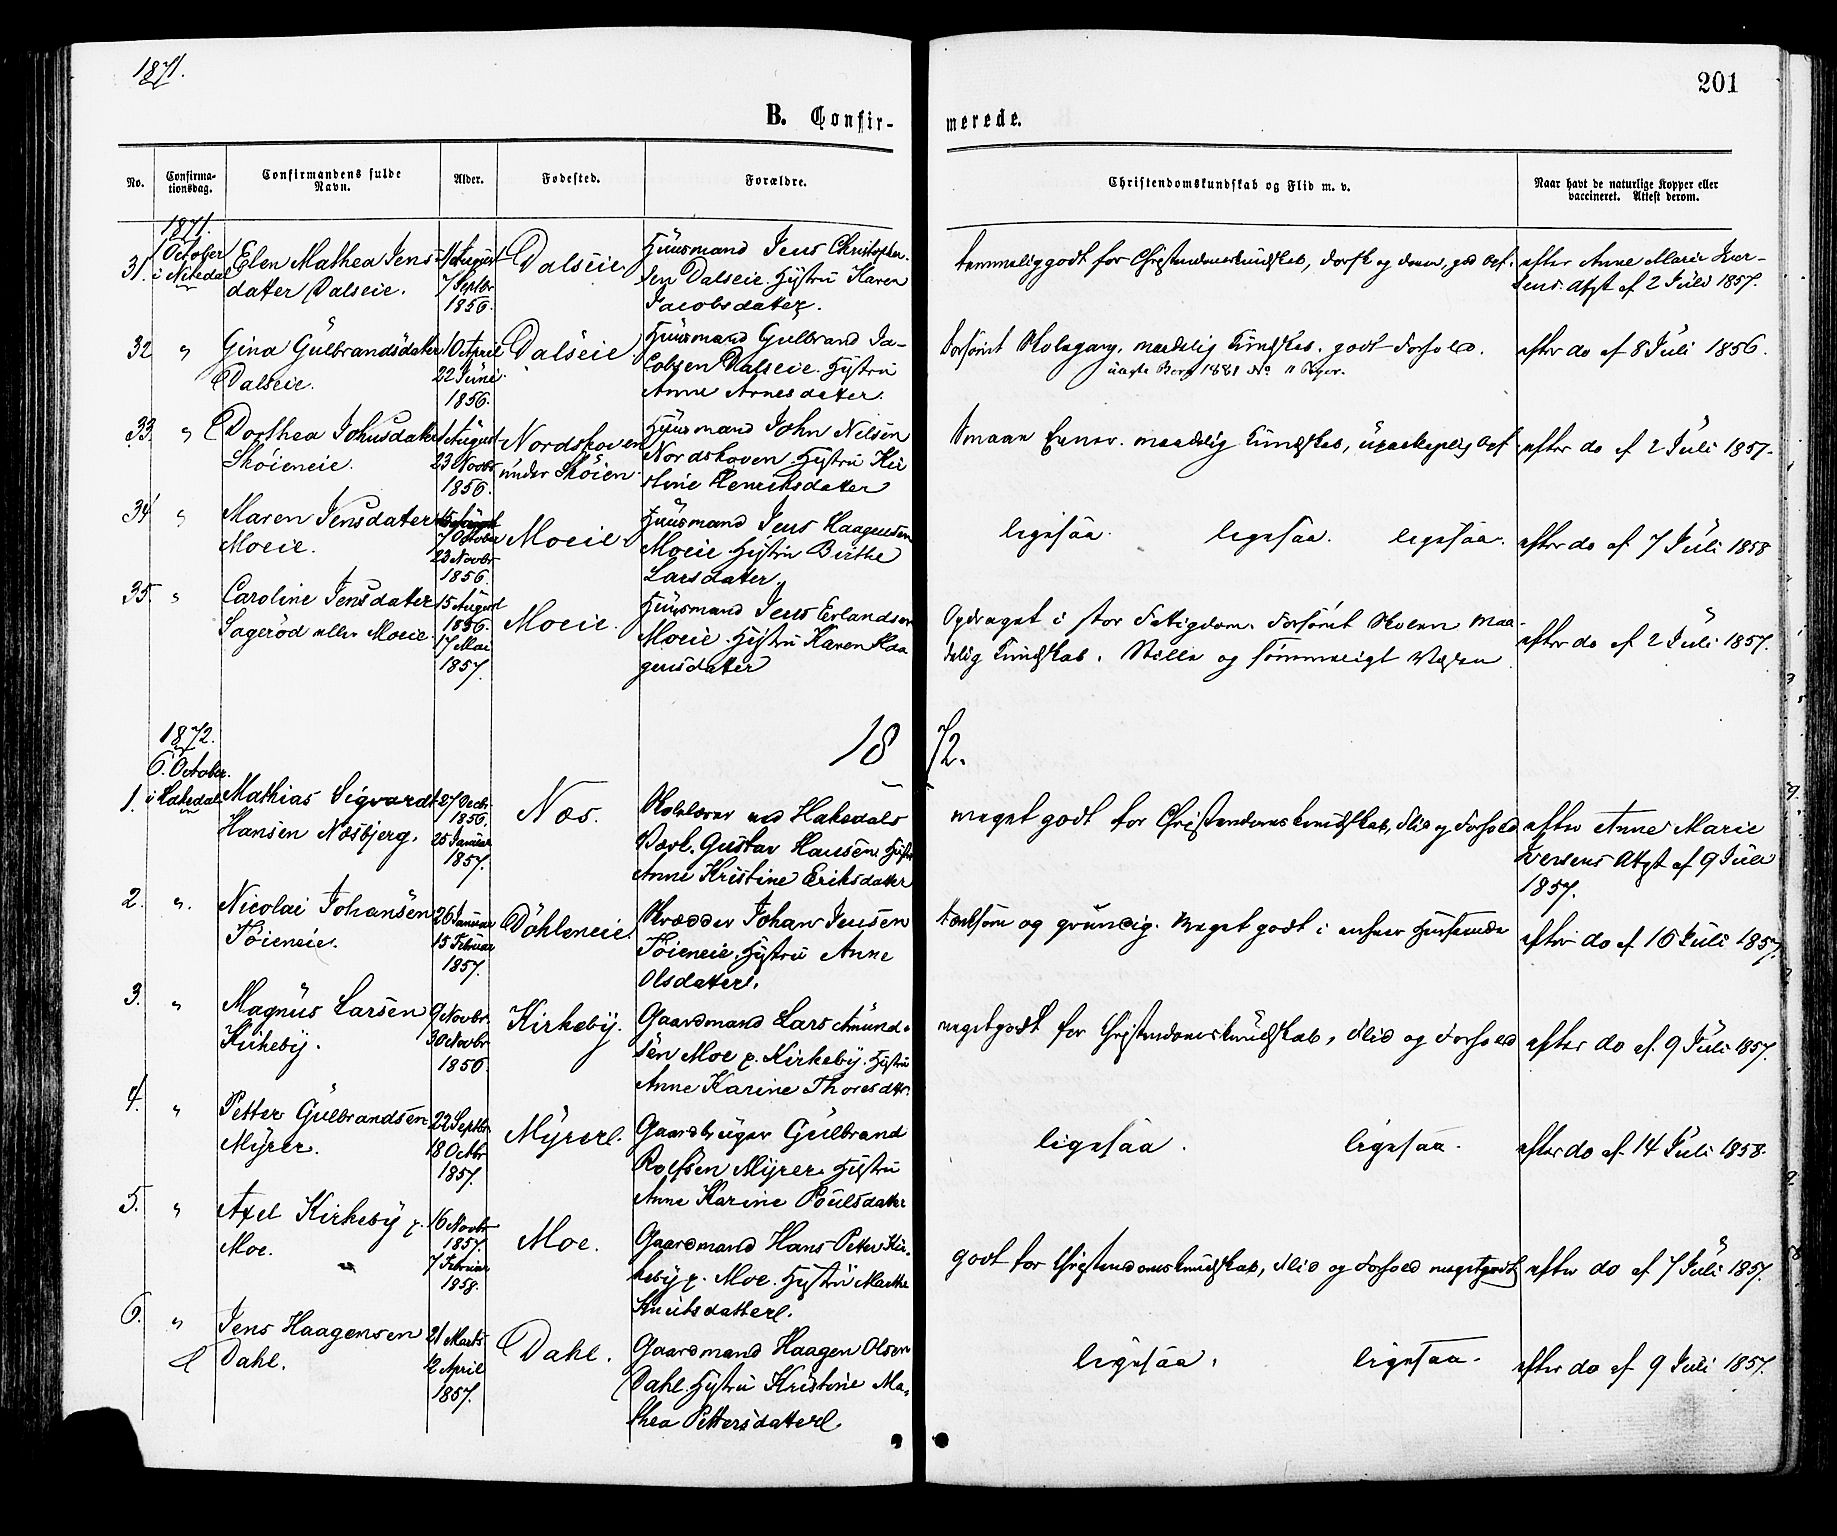 1871.
201
B. Confir-
merede.
No.
Confirma-
tionsdag.
Confirmandens fulde
Navn.
Alder.
Fødested.
Forældre.
Christendomskundskab og Flid m. v.
Naar havt de naturlige Kopper eller
vaccineret. Attest derom.
1871.
31. 1 October
i Nitedal
Elen Mathea Jens-
datter Dalseie.
11 August
7 Septbr
1856.
Dalseie.
Huusmand Jens Christophers-
sen Dalseie. Hystru Karen
Jacobsdatter.
temmelig godt for Christendomskundskab,
efter Anne Marie Iver-
sens Atgt af 2 Juli 1857.
32 "
Gina Gulbrandsdatter
Dalseie.
April
22 Juni
1856.
Dalseie.
Huusmand Gulbrand Ja-
cobsen Dalseie. Hystru
Anne Arnesdatter.
forsømt Skolegang. maadelig Kundskab. godt Forhold.
efter do af 8 Juli 1856.
33. "
Dorthea Johnsdatter
Skøieneie.
1 August
23 Novbr
1856.
Nordskoven
under Skøien.
Huusmand John Nilsen
Nordskoven Hystru Kir-
stine Henriksdatter
smaae Evner. maadelig Kundskab,
efter do af 2 Juli 1857.
34 "
Maren Jensdatter
Moeie.
7 October
23 Novbr
1856.
Moeie.
Huusmand Jens Haagensen
Moeie Hystru Birthe
Larsdatter.
ligesaa. ligesaa. ligesaa.
efter do af 7 Juli 1858
35. "
Caroline Jensdatter
Sagerød eller Moeie.
15 August
1856.
17 Mai
1857.
Moeie.
Huusmand Jens Erlandsen
Moeie. Hystru Karen Haa
gensdatter
Opdraget i stor Fattigdom. Forsømt Skolen. Maa-
delig Kundskab. Stille og sømmeligt Væsen
efter do af 2 Juli 1857.
1872.
1872.
6. October.
1. i Hakedal
Mathias Sigvardt
Hansen Næsbjerg.
27 Decbr
1856.
25 Januar
1857.
Næs.
Skolelærer ved Hakedals
Værk. Gustav Hansen Hystru
Anne Kristine Eriksdatter
meget godt for Christendomskundskab, Flid og Forhold
efter Anne Marie
Iversens Atgt af 9 Juli
1857.
2. "
Nicolai Johansen
Tøieneie.
26 Januar
15 Februar
1857.
Døhleneie.
Skrædder Johan Jensen
Tøieneie. Hystru Anne
Olsdatter.
tænksom og grundig. Meget godt i enhver Henseende
efter do af 16 Juli 1857.
3. "
Magnus Larsen
Kirkeby.
9 Novbr
30 Novbr
1856.
Kirkeby.
Gaardmand Lars Amund-
sen Moe p. Kirkeby. Hystru
Anne Karine Thoresdtr.
meget godt for Christendomskundskab, Flid og Forhold
efter do af. 9 Juli 1857.
4. "
Petter Gulbrandsen
Myrer.
22 Septbr
18 Octbr
1857.
Myrer.
Gaardbruger Gulbrand
Rolfsen Myrer. Hystru
Anne Karine Poulsdatter
ligesaa. ligesaa.
efter do af. 14 Juli 1858.
5. "
Axel Kirkeby p.
Moe.
16 Novbr
1857.
7 Februar
1858.
Moe.
Gaardmand Hans Petter Kir-
keby p. Moe. Hystru Marthe
Knutsdatter.
godt for Christendomskundskab, Flid og Forhold meget godt
efter do af 7 Juli 1857.
6. "
Jens Haagensen
Dahl.
21 Marts
12 April
1857.
Dahl.
Gaardmand Haagen Olsen
Dahl. Hystru Kristine Ma-
thea Pettersdatter.
ligesaa. ligesaa.
efter do af 9 Juli 1857.